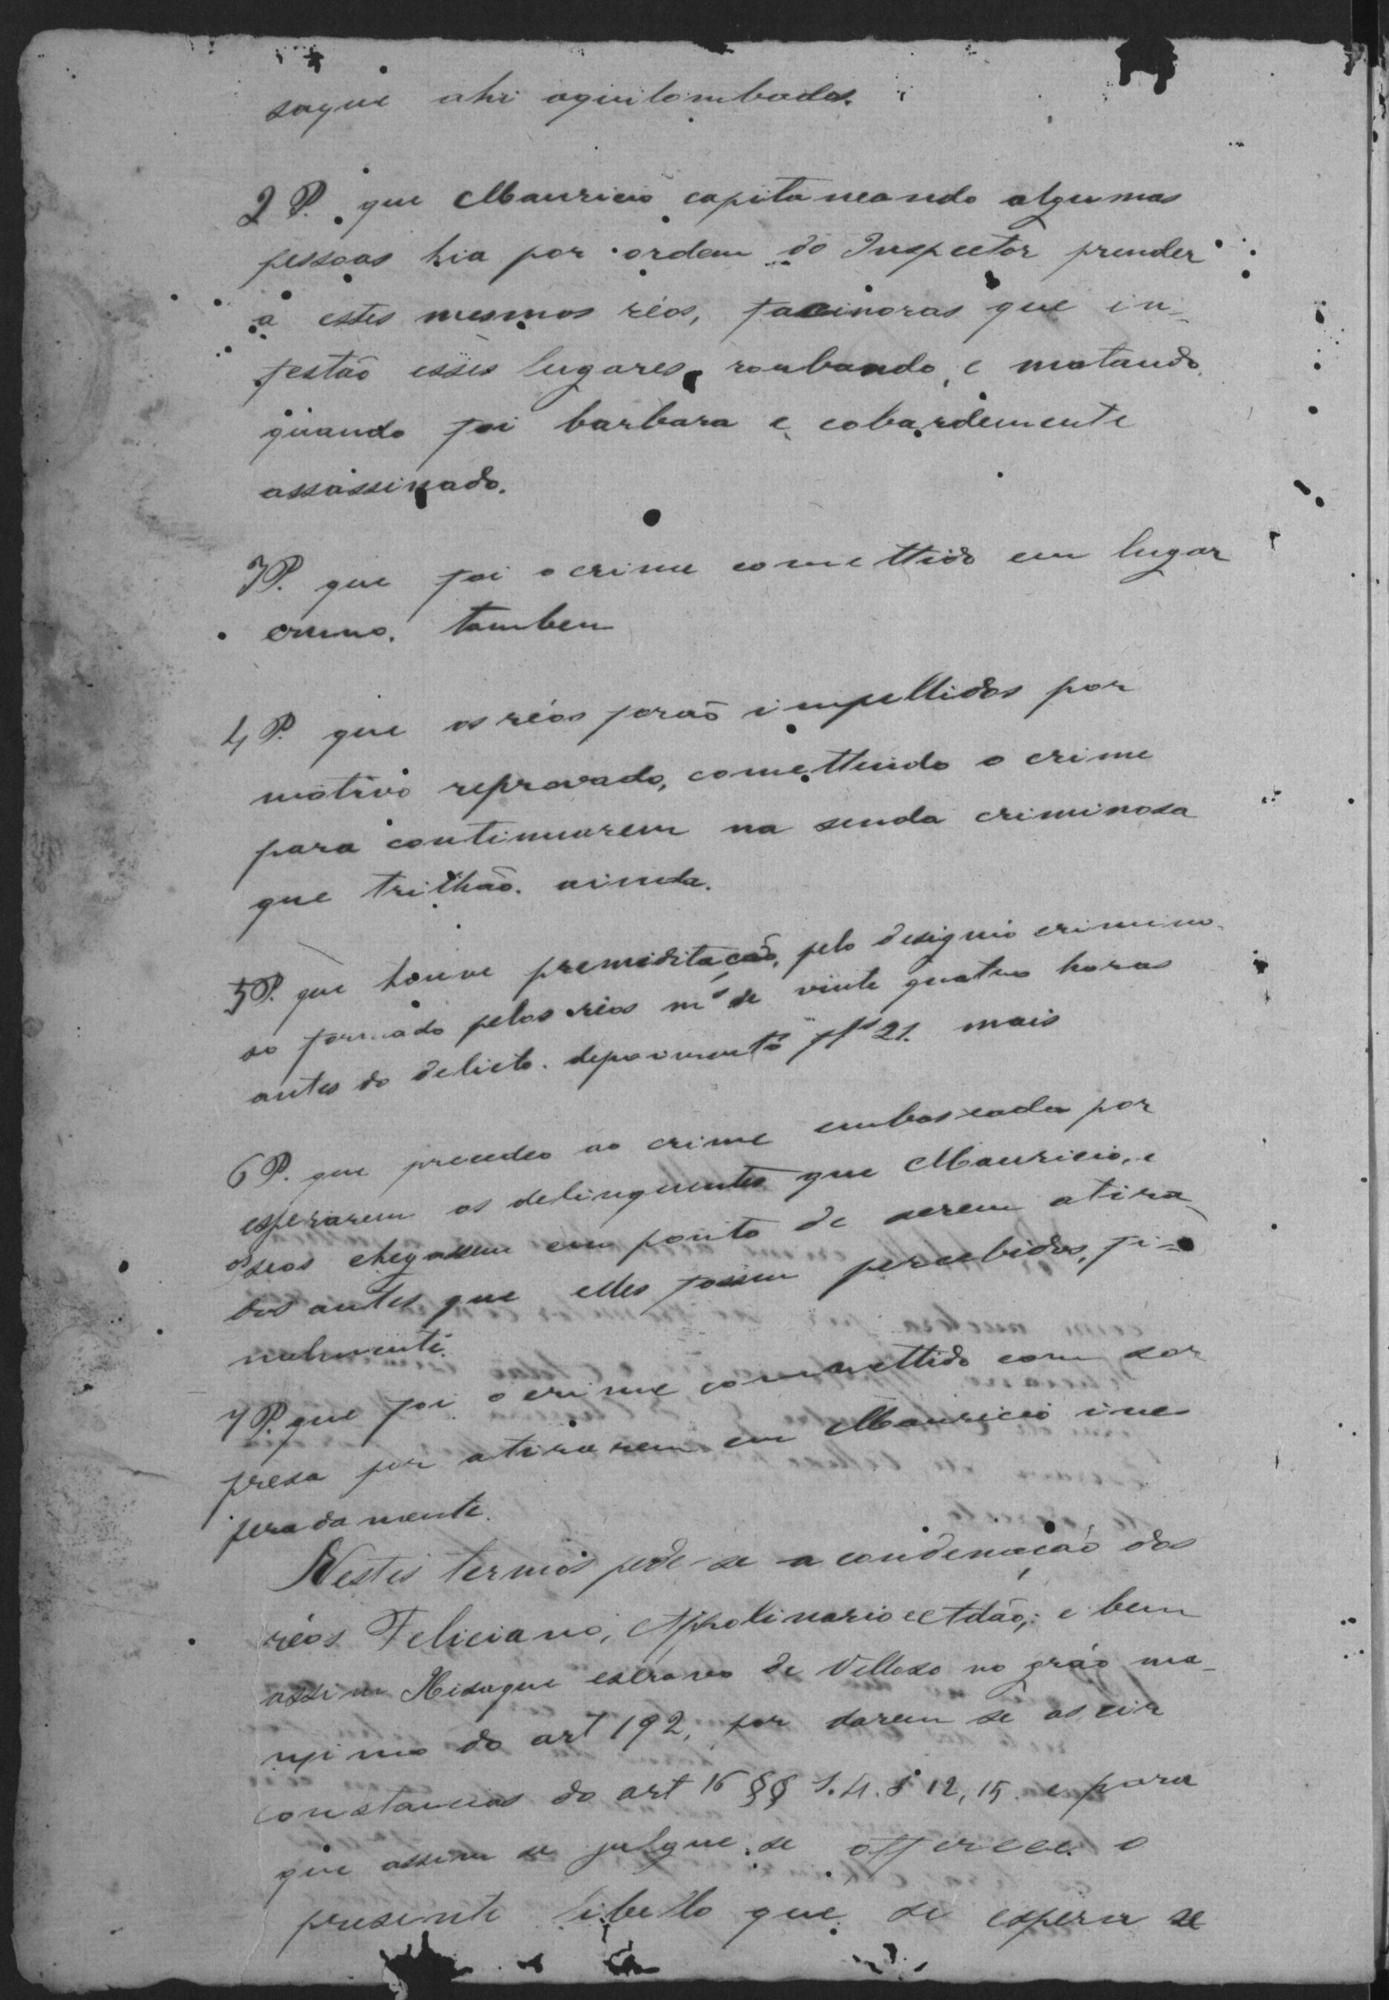 saque ahi aquilombados.
2 P. que Mauricio capitaneando algumas
pessoas hia por ordem do Inspector prender
a estes mesmos réos, facinoras que in-
festão esses lugares, roubando, e matando,
quando foi barbara e cobardemente
assassinado.
3 P. que foi o crime comettido em lugar
ermo. tambem
4 P. que os réos forão impellidos por
motivo reprovado, comettendo o crime
para continuarem na senda criminosa
que trilhão. ainda.
5 P. que houve premeditação, pelo designio crimino-
so formado pelos réos m.s de vinte quatro horas
antes do delicto. depoimento ffs 21. mais
6 P. que precedeo ao crime emboscada por
esperarem os delinquentes que Mauricio, e
os seos chegassem em ponto de serem atira-
dos antes que elles fossem percebidos, fi-
nalmente.
7 P. que foi o crime commettido com sor
presa por atirarem em Mauricio ines
peradamente.
Nestes termos pede-se a condenação dos
réos Feliciano, Apolinario e Adão; e bem
assim escravo de Velloso no gráo ma-
ximo do art 192, por darem se as cir
constancias do art 16 §§ 1. 4. 8 12, 15. e para
que assim se julgue, se offerece o
presente libello que se espera se